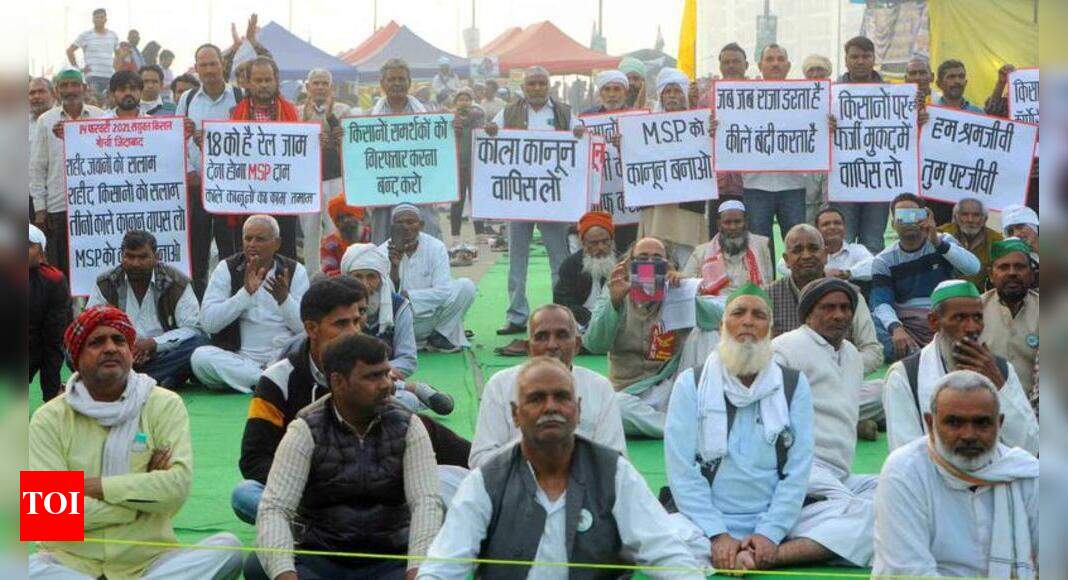 14 फरवरी 2021 संयुक्त किसान
मोर्चा जिंदाबाद
शहीद जवानों को सलाम
शहीद किसानों को सलाम
तीनों काले कानून वापस लो
MSP को
18 को है रेल जाम
ट्रेना होगा MSP ट्राम
काले कानूनों का काम तमाम
किसानों समर्थकों को
गिरफ्तार करना
बन्द करो
काला कानून
वापिस लो
M.S.P. को
कानून बनाओ
जब जब राजा डरता है
कीले बंदी करता है
किसानों पर
फर्जी मुकद्दमें
वापिस लो
हम श्रमजीवी
तुम परजीवी
TOI